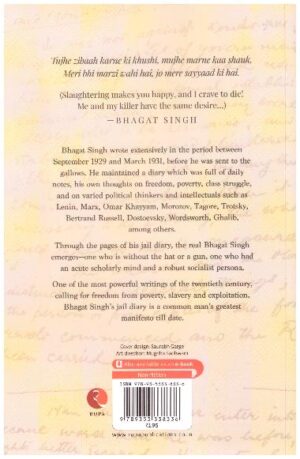 Tujhe zibaah karne ki khushi, mujhe marne kaa shauk,
Meri bhi marzi wahi hai, jo mere sayyaad ki hai.
(Slaughtering makes you happy, and I crave to die!
Me and my killer have the same desire...)
—BHAGAT SINGH
Bhagat Singh wrote extensively in the period between
September 1929 and March 1931, before he was sent to the
gallows. He maintained a diary which was full of daily
notes, his own thoughts on freedom, poverty, class struggle,
and on varied political thinkers and intellectuals such as
Lenin, Marx, Omar Khayyam, Morozov, Tagore, Trotsky,
Bertrand Russell, Dostoevsky, Wordsworth, Ghalib,
among others.
Through the pages of his jail diary, the real Bhagat Singh
emerges—one who is without the hat or a gun, one who had
an acute scholarly mind and a robust socialist persona.
One of the most powerful writings of the twentieth century,
calling for freedom from poverty, slavery and exploitation.
Bhagat Singh's jail diary is a common man's greatest
manifesto till date.
Cover design: Saurabh Garge
Art direction: Mugdha Sadhwani
Also available as an e-book
Non-fiction
RUPA
ISBN
₹195
www.rupapublications.co.in